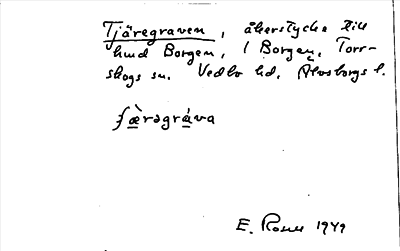 Tjäregraven, åkerstycke till
hmd Borgen, 1 Borgen, Torr-
skogs sn. Vedbo hd, Älvsborgs l.
ʃæ̀rəgráva
E. Rosell 1949